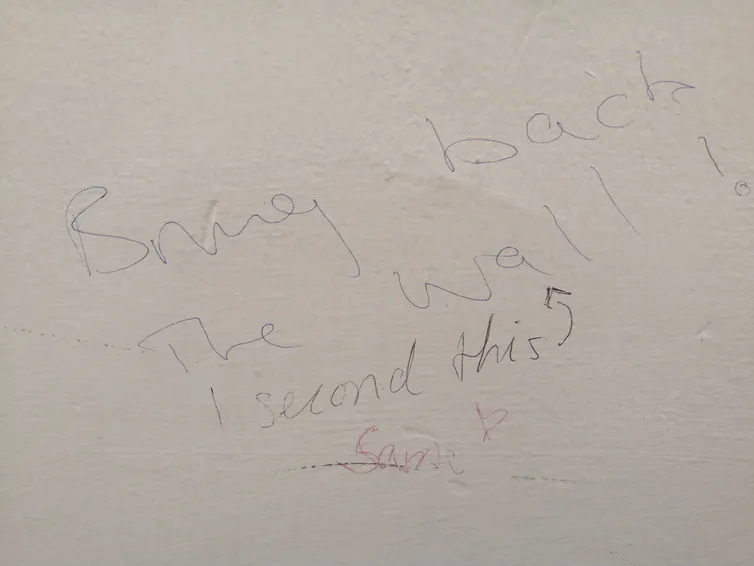 Bring back
The wall!
I second this
Same